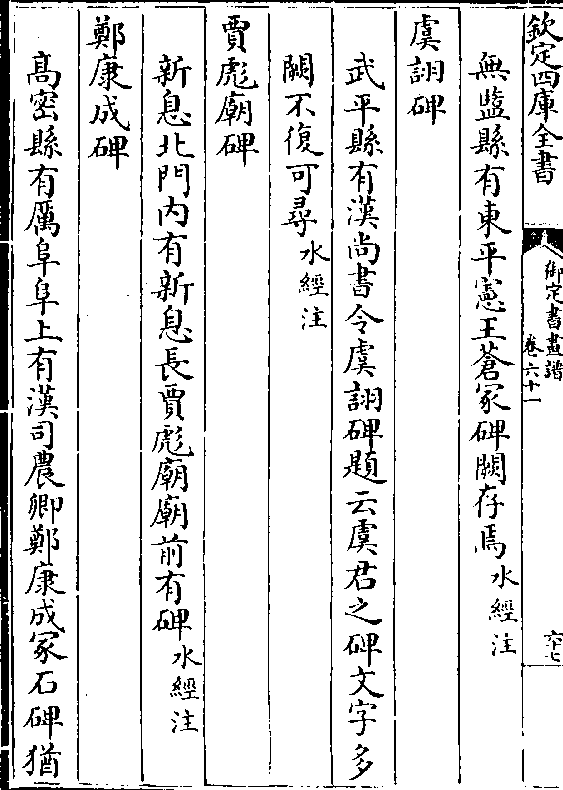 欽定四庫全書
御定書畫譜
卷六十一
六十七
無鹽縣有東平憲王蒼冢碑闕存焉水經注
虞詡碑
武平縣有漢尚書令虞詡碑題云虞君之碑文字多
闕不復可尋水經注
賈彪廟碑
新息北門内有新息長賈彪廟廟前有碑水經注
鄭康成碑
高密縣有厲阜阜上有漢司農卿鄭康成冢石碑猶